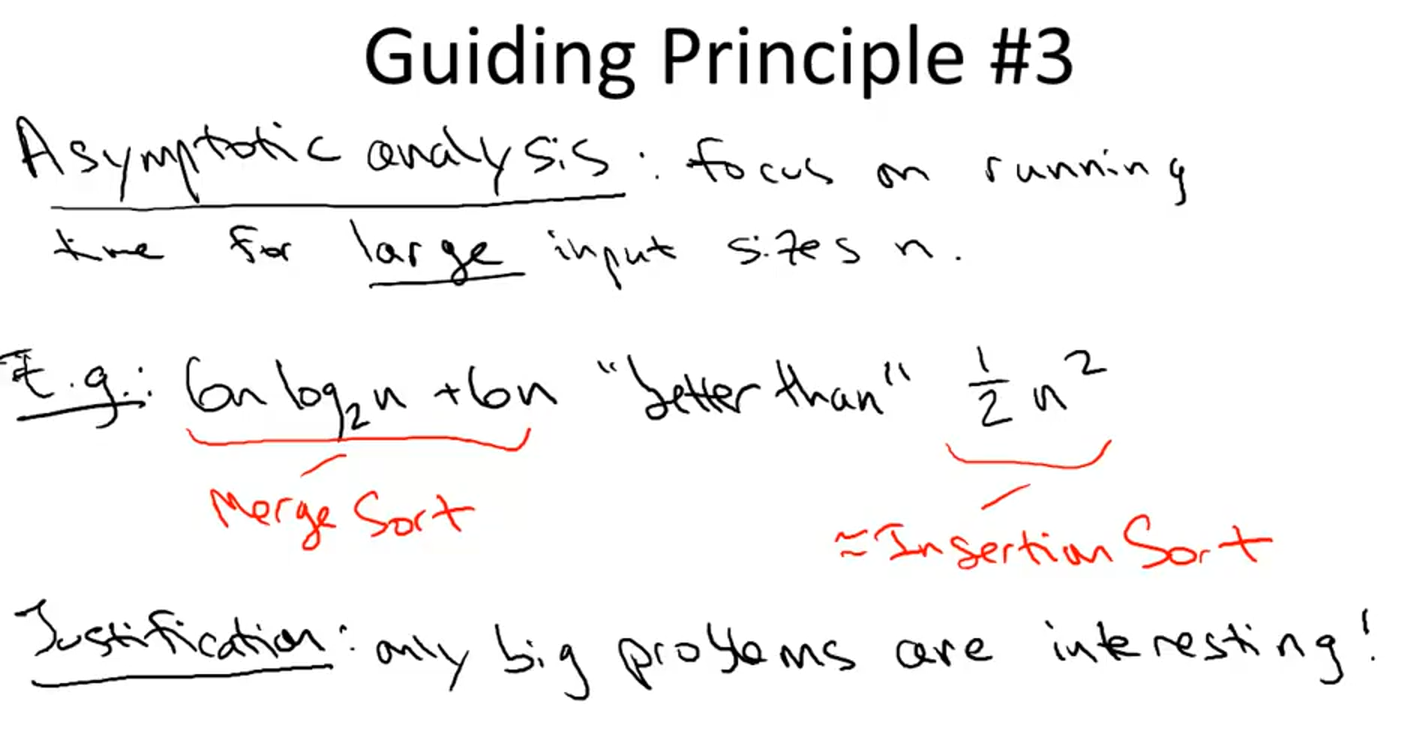 Guiding Principle #3
Asymptotic analysis : focus on running
time for large input sizes n.
E.g.: 6n log₂n + 6n "better than" ½ n²
Merge Sort
≈ Insertion Sort
Justification: only big problems are interesting!